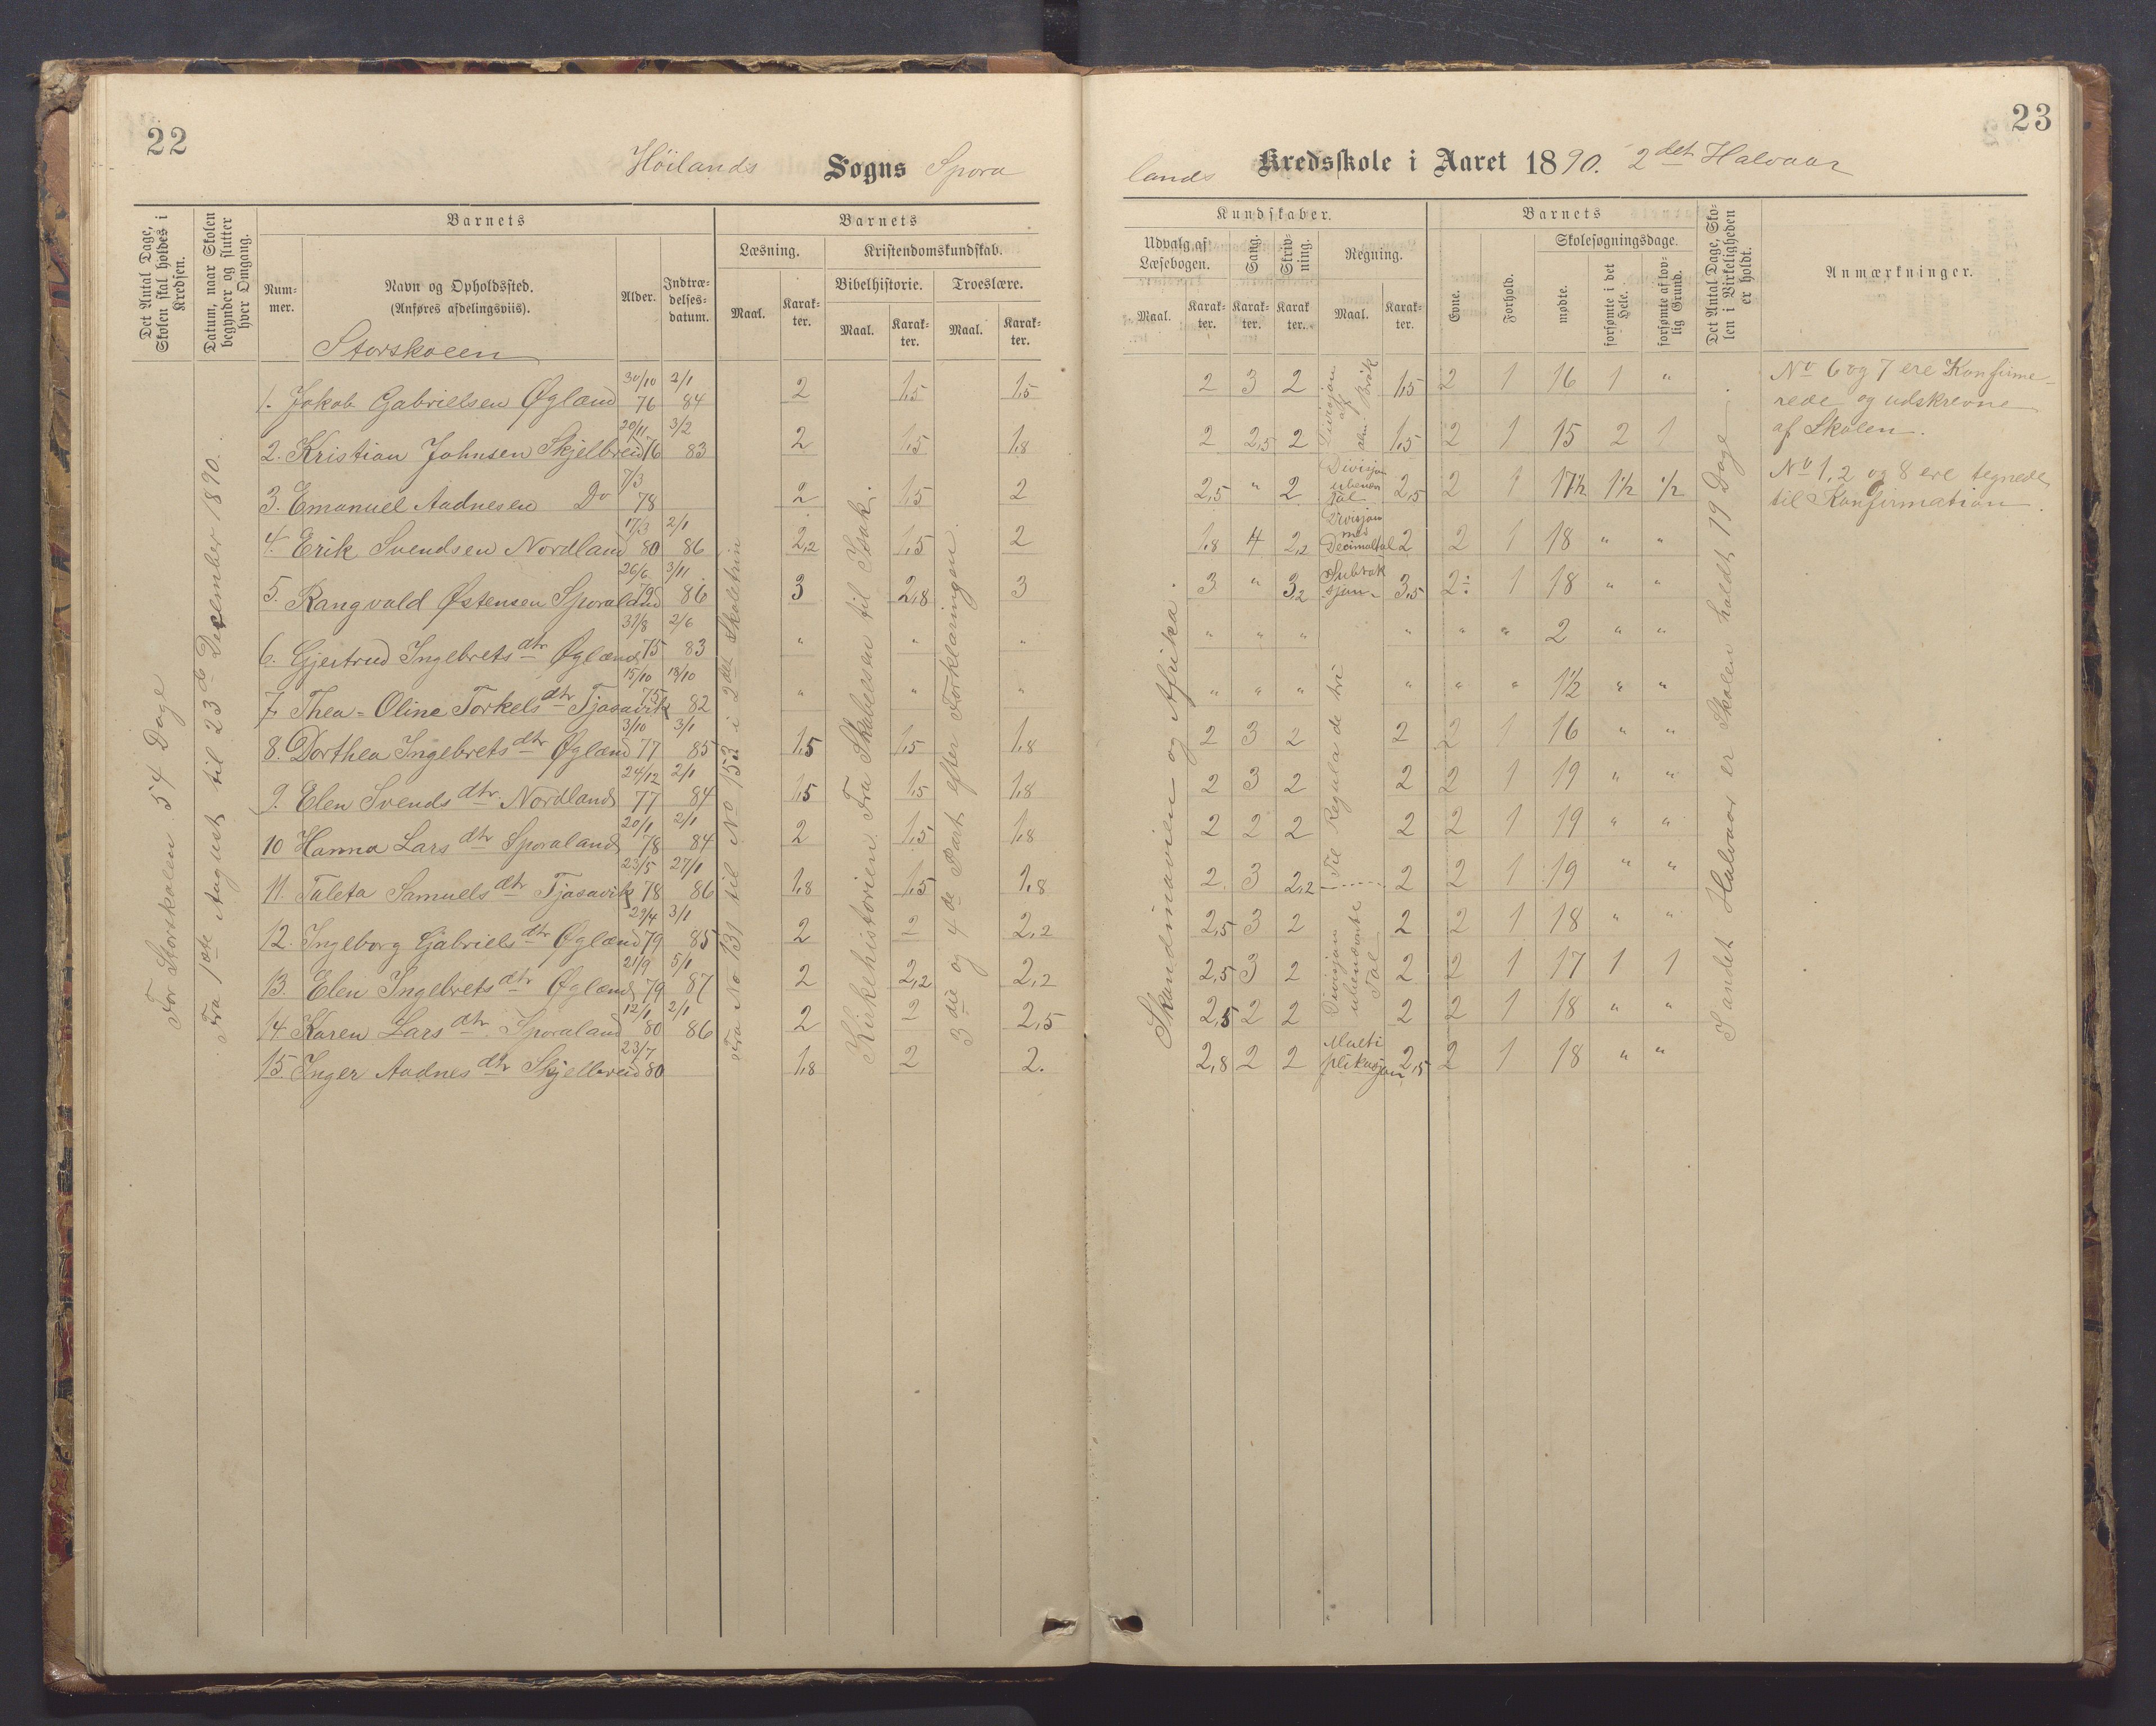 22
Höilands Sogns Spora
Det Antal Dage, Skolen skal holdes i Kredsen.
Datum, naar Skolen begynder og slutter hver Omgang.
Barnets
Nummer.
Navn og Opholdssted.
(Anføres afdelingsviis).
Alder.
Indtrædelsesdatum.
Barnets
Læsning.
Maal.
Karakter.
Kristendomskundskab.
Bibelhistorie.
Maal.
Karakter.
Troeslære.
Maal.
Karakter.
Storskolen
For Storskolen 54 Dage
Fra 1ste August til 23de December 1890.
1. Jakob Gabrielsen Øglænd 30/10 76 2/1 84 2 1,5 1,5
2. Kristian Johnsen Skjelbreid 20/11 76 3/2 83 2 1,5 1,8
3. Emanuel Aadnesen Do 7/3 78 2 1,5 2
4. Erik Svendsen Nordland 17/3 80 2/1 86 2,2 1,5 2
5. Rangvald Østensen Sporaland 26/6 79 3/11 86 3 2,8 3
6. Gjertrud Ingebretsdtr Øglænd 31/8 75 2/6 83 " " "
7. Thea-Oline Torkelsdtr Tjosavik 15/10 75 18/10 82 " " "
8. Dorthea Ingebretsdtr Øglænd 3/10 77 3/1 85 1,5 1,5 1,8
9. Elen Svendsdtr. Nordland 24/12 77 2/1 84 1,5 1,5 1,8
10 Hanna Larsdtr Sporaland 20/1 78 2/1 84 2 1,5 1,8
11. Taleta Samuelsdtr Tjosavik 23/5 78 27/1 86 1,8 1,5 1,8
12. Ingeborg Gabrielsdtr Øglænd 29/4 79 3/1 85 2 2 2,2
13. Elen Ingebretsdtr Øglænd 21/9 79 5/1 87 2 2,2 2,2
14 Karen Larsdtr. Sporaland 12/1 80 2/1 86 2 2 2,5
15. Inger Aadnesdtr Skjelbreid 23/7 80 1,8 2 2.
Fra No 131 til No 153 i 2det Skoletrin
Kirkehistorien. Fra Skabelsen til Isak.
3die og 4de Part efter Forklaringen.
23
lands Kredsskole i Aaret 1890. 2det Halvaar
Kundskaber.
Udvalg af Læsebogen.
Maal.
Karakter.
Sang.
Karakter.
Skrivning.
Karakter.
Regning.
Maal.
Karakter.
Barnets
Evne.
Forhold.
Skolesøgningsdage.
mødte.
forsømte i det Hele.
forsømte af lovlig Grund.
Det Antal Dage, Skolen i Virkeligheden er holdt.
Anmærkninger.
2 3 2 1,5 2 1 16 1 "
2 2,5 2 1,5 2 1 15 2 1
2,5 " 2 2,5 2 1 17½ 1½ ½
1,8 4 2,2 2 2 1 18 " "
3 " 3,2 3,5 2 1 18 " "
" " " " " " 2 " "
" " " " " " 1½ " "
2 3 2 2 2 1 16 " "
2 3 2 2 2 1 19 " "
2 2 2 2 2 1 19 " "
2 3 2,2 2 2 1 19 " "
2,5 3 2 2 2 1 18 " "
2,5 3 2 2 2 1 17 1 1
2,5 2 2 2 2 1 18 " "
2,8 2 2 2,5 2 1 18 " "
Skandinavien og Afrika.
Divisjon af alm. Brøk
Divisjon ubenævn Tal
Divisjon med Decimaltal
Subtraksjon
Til Regula de tri
Divisjon ubenævnte Tal
Multiplikasjon
I andet Halvaar er Skolen holdt 19 Dage.
No 6 og 7 ere Konfirmerede og udskrevne
af Skolen.
No 1, 2 og 8 ere tegnede
til Konfirmation.